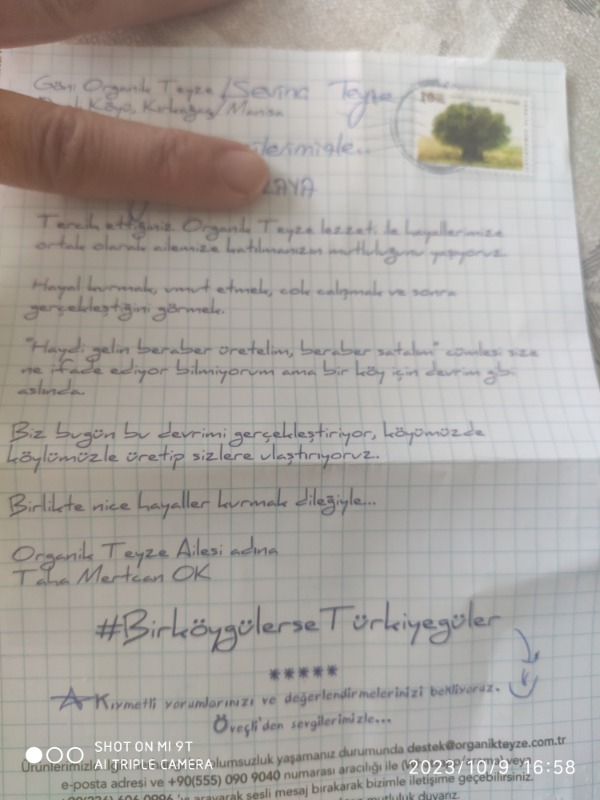 Organik Teyze / Sevinç Teyze
Köyü, Kırkağaç / Manisa
20
ilerimizle..
ZAYA
Tercih ettiğiniz Organik Teyze lezzeti ile hayallerimize
ortak olarak ailemize katılmanızın mutluluğunu yaşıyoruz.
Hayal kurmak, umut etmek, çok çalışmak ve sonra
gerçekleştiğini görmek.
"Haydi gelin beraber üretelim, beraber satalım" cümlesi size
ne ifade ediyor bilmiyorum ama bir köy için devrim gibi
aslında.
Biz bugün bu devrimi gerçekleştiriyor, köyümüzde
köylümüzle üretip sizlere ulaştırıyoruz.
Birlikte nice hayaller kurmak dileğiyle...
Organik Teyze Ailesi adına
Taha Mertcan OK
#BirköygülerseTürkiyegüler
*****
Kıymetli yorumlarınızı ve değerlendirmelerinizi bekliyoruz.
Öveçli'den sevgilerimizle...
Ürünlerimizle olumsuzluk yaşamanız durumunda destek@organikteyze.com.tr
e-posta adresi ve +90(555) 090 9040 numarası aracılığı ile
arayarak sesli mesaj bırakarak bizimle iletişime geçebilirsiniz.
mutluluk duyarız.
SHOT ON MI 9T
AI TRIPLE CAMERA
2023/10/9 16:58